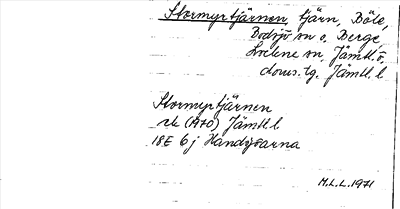 Stormyrtjärnen, tjärn, Böle,
Bodsjö sn o. Berge,
Lockne sn, Jämtl. ö.
doms. tg. Jämtl. l
Stormyrtjärnen
rk (1970) Jämtl. l
18E 6j Handsjöarna
M.L.L. 1971